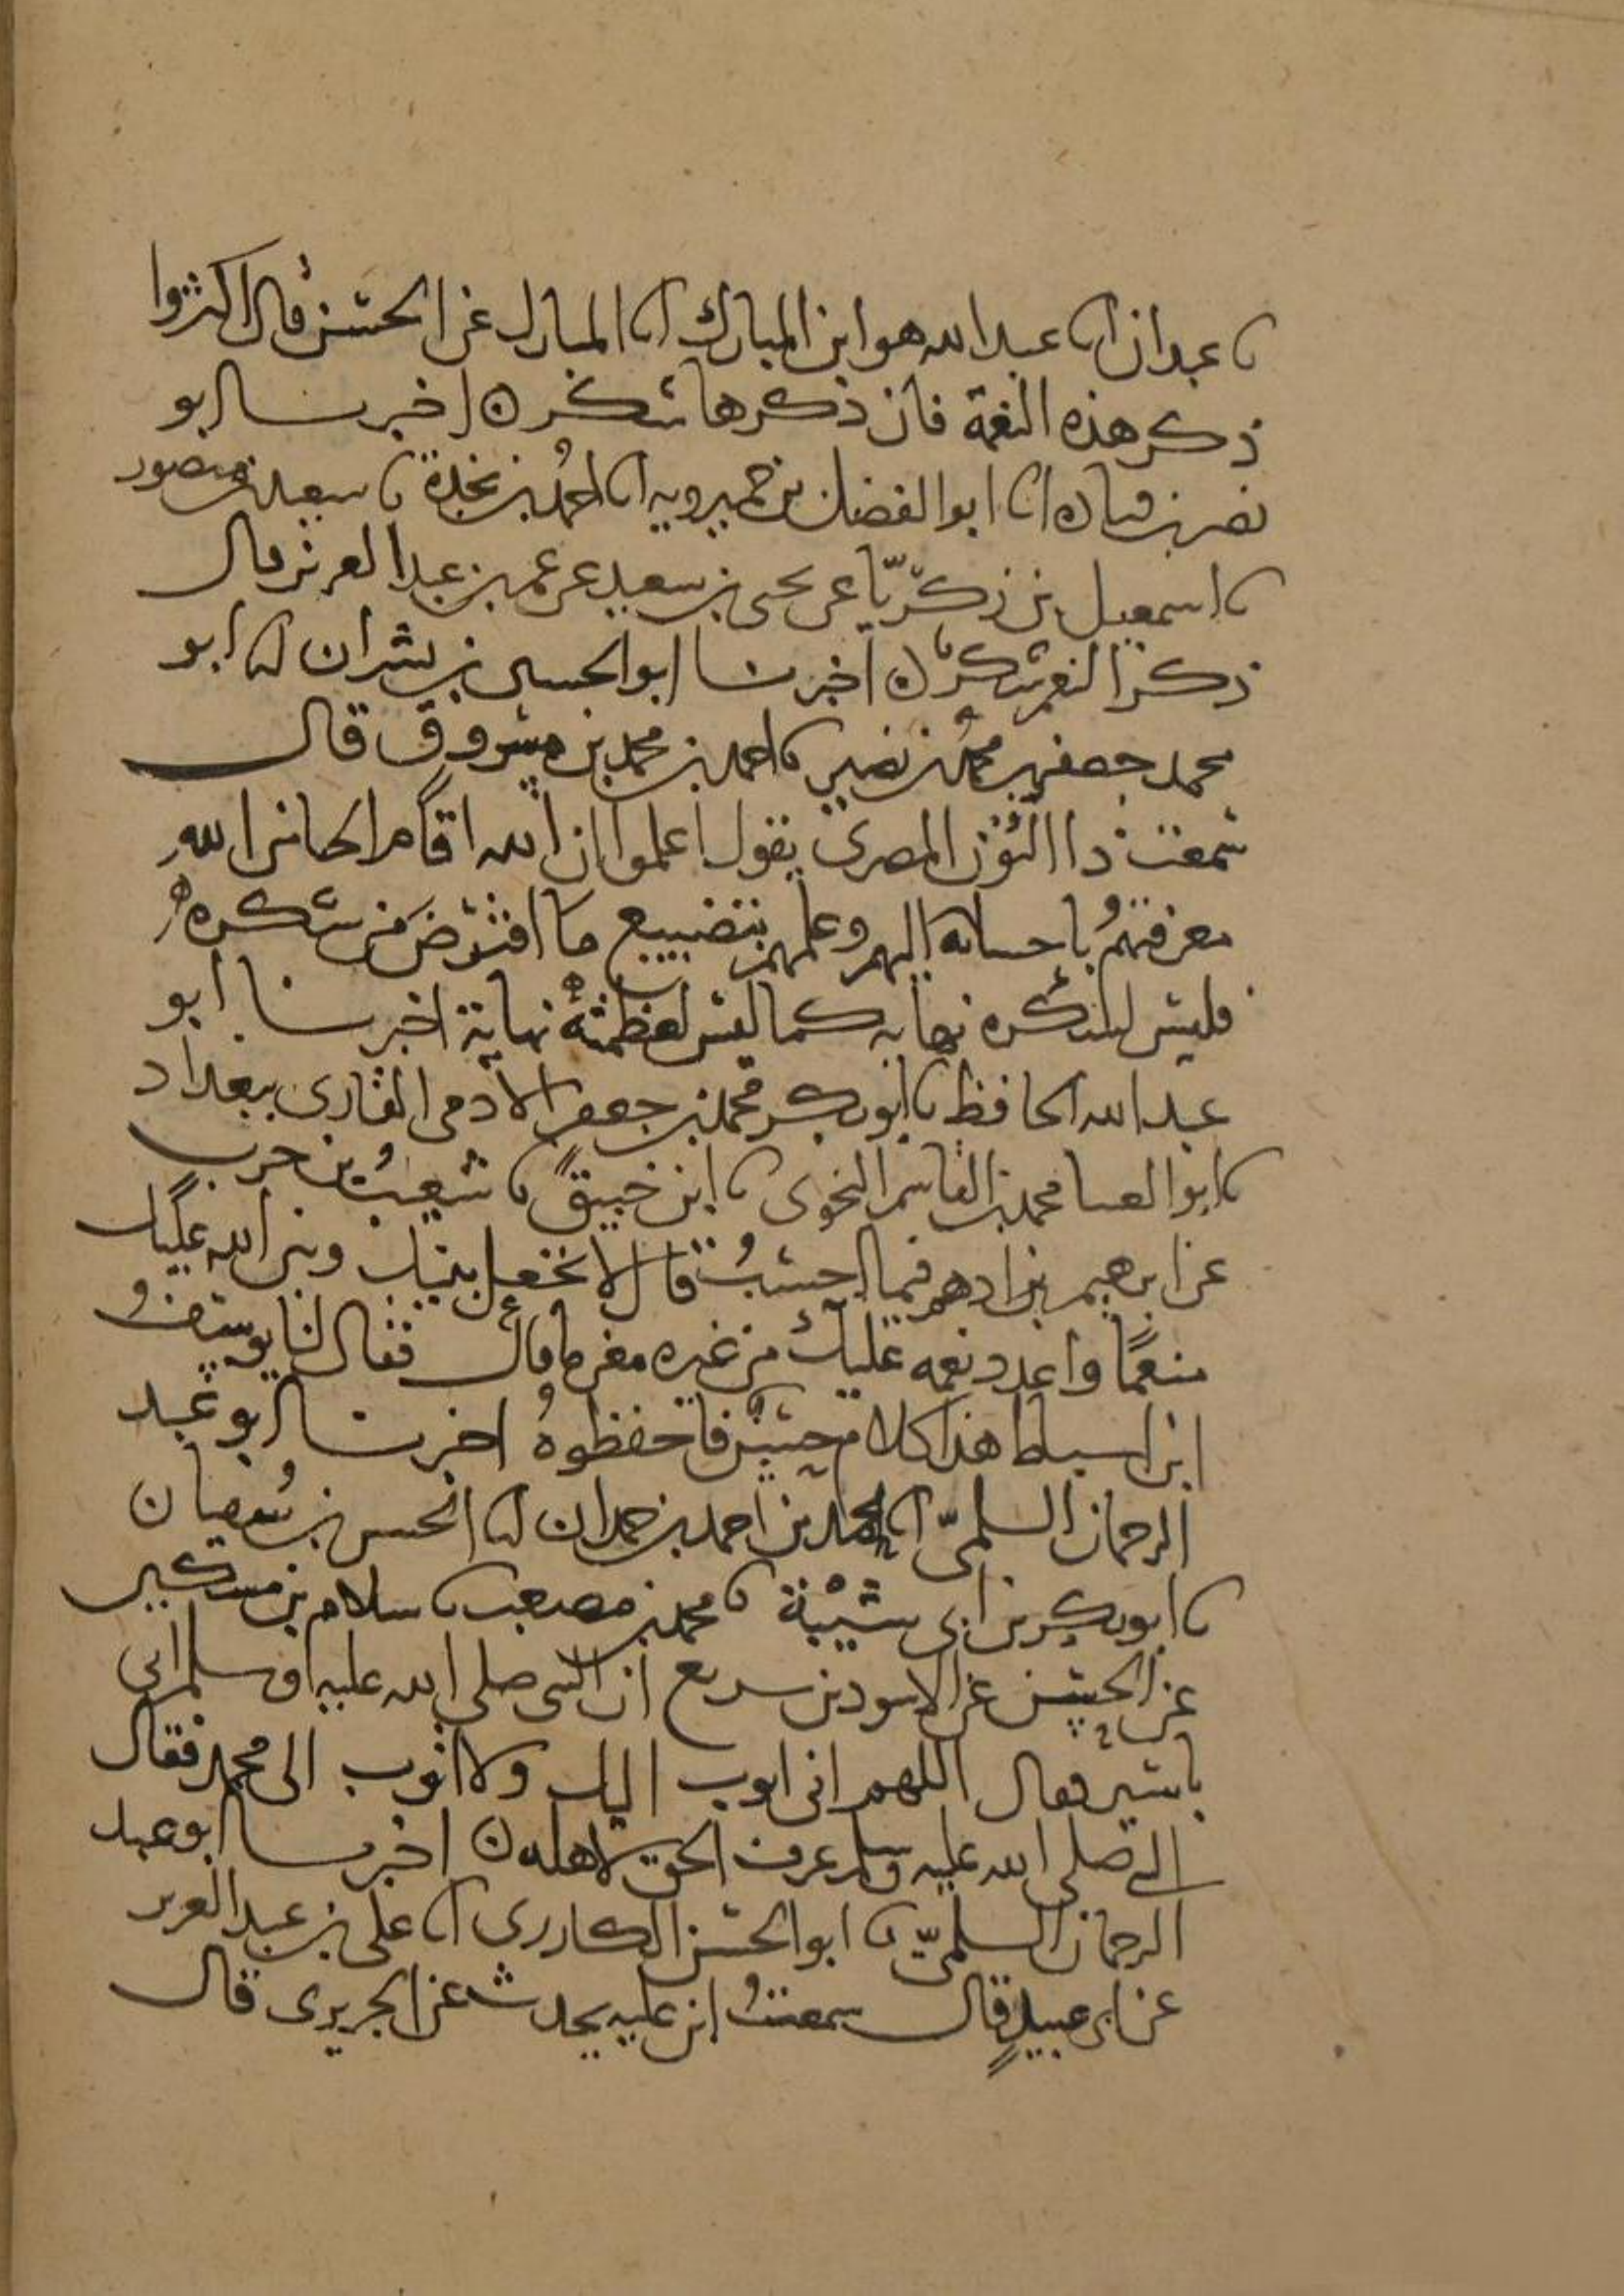 نا عبدان انا عبد الله هو ابن المبارك انا المبارك عن الحسن قال اكثروا
ذكر هذه النعمة فان ذكرها شكر ه اخبرنا ابو
نصر بن قتادة انا ابو الفضل بن خميرويه انا احمد بن نجدة نا سعيد بن منصور
نا اسمعيل بن زكريا عن يحيى بن سعيد عن عمر بن عبد العزيز قال
ذكر النعم شكر ه اخبرنا ابو الحسين بن بشران انا ابو
محمد جعفر بن محمد بن نصير نا احمد بن محمد بن مسروق قال
سمعت ذا النون المصرى يقول اعلموا ان الله اقام الحانر الله
معرفتهم باحسانه اليهم وعلمهم بتضييع ما افترض من شكره
فليس للذكره نهاية كما ليس لعظمته نهاية اخبرنا ابو
عبد الله الحافظ نا ابو بكر محمد بن جعفر الادمى القارى ببغداد
نا ابو العينا محمد بن القاسم النحوى نا ابن خبيق نا شعيب بن حرب
عن ابرهيم بن ادهم فيما احسب قال لا تجعل بينك وبين الله عليك
منعما واعدد نعمه عليك من غيره مغرما قال فقال لنا يوسف
ابن اسباط هذا كلام حسن فاحفظوه اخبرنا ابو عبد
الرحمان السلمى انا محمد بن احمد بن حمدان انا الحسن بن سفيان
نا ابو بكر بن ابى شيبة نا محمد بن مصعب نا سلام بن مسكين
عن الحسن عن الاسود بن سريع ان النبى صلى الله عليه وسلم اتى
باسير فقال اللهم انى اتوب اليك ولا اتوب الى محمد فقال
النبى صلى الله عليه وسلم عرف الحق لاهله ه اخبرنا ابو عبد
الرحمان السلمى انا ابو الحسن الكارزى انا على بن عبد العزيز
عن ابى عبيد قال سمعت ابن علية يحدث عن الجريرى قال